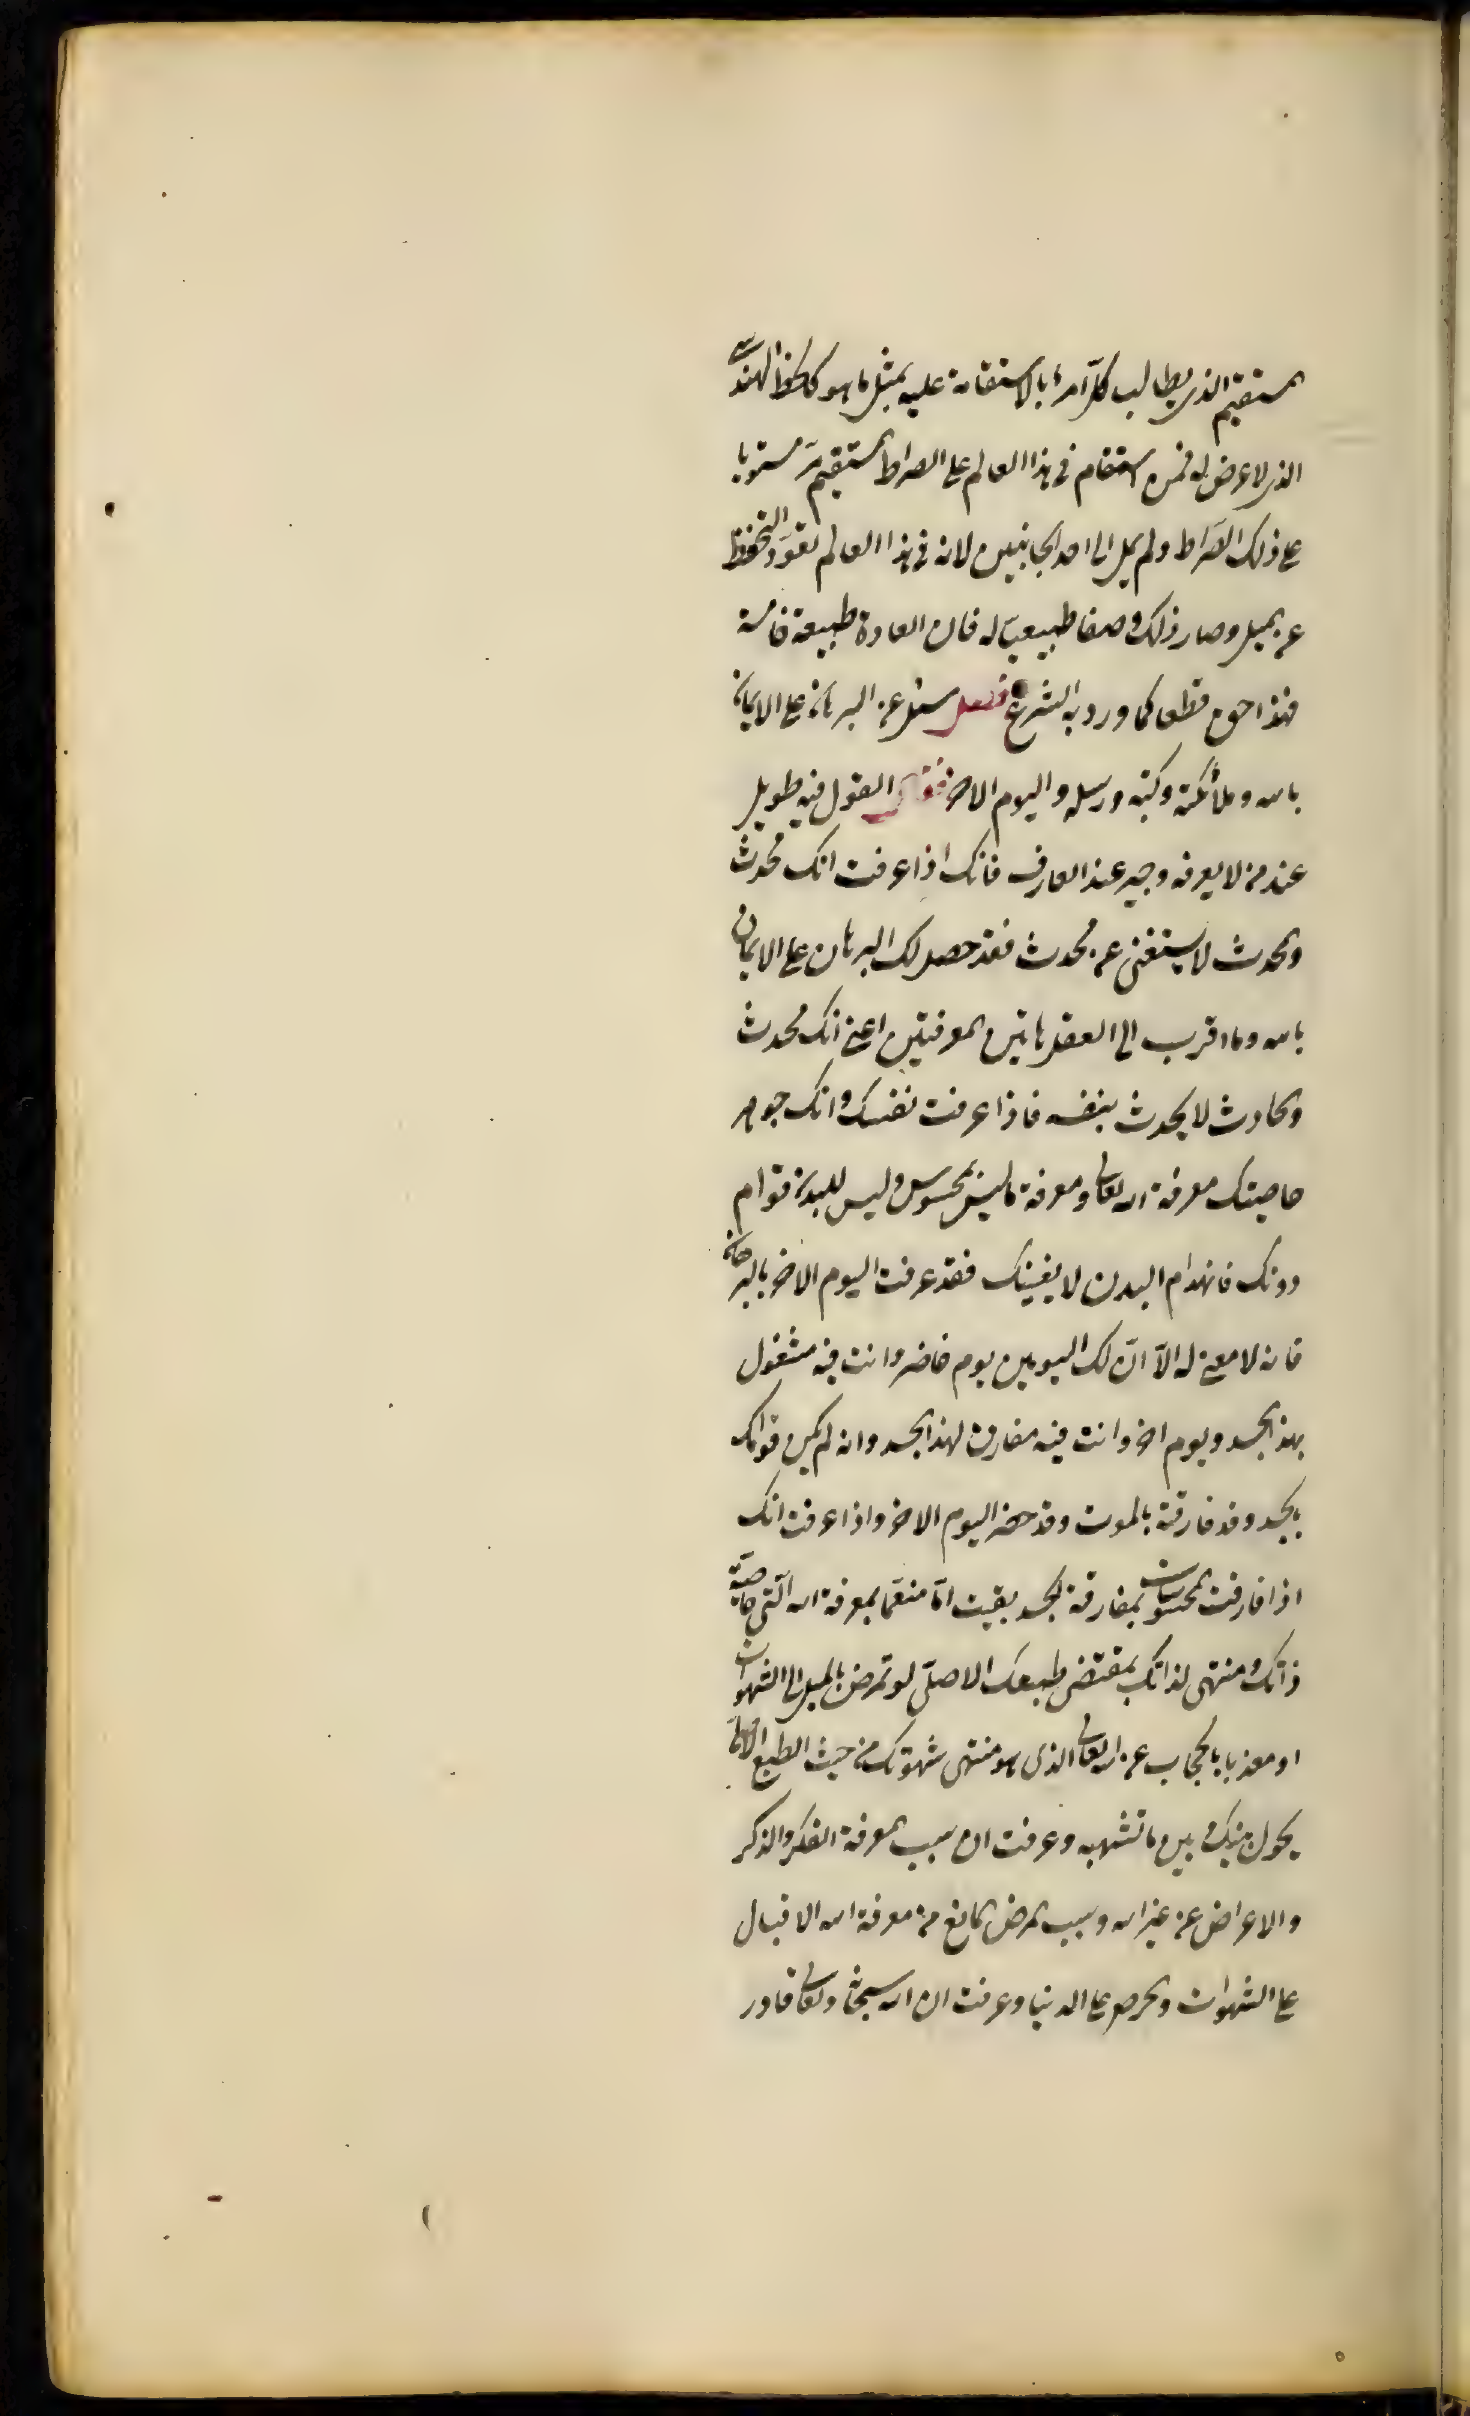 المستقيم الذى يطالب كل امرء بالاستقامة عليه بمثل ما هو كالخط الهندسى
الذى لا عرض له فمن استقام فى هذا العالم على الصراط المستقيم مر مستويا
على ذلك الصراط ولم يمل الى احد الجانبين لانه فى هذا العالم تعود التحفظ
عن الميل وصار ذلك وصفا طبيعيا له فان العادة طبيعة خامسة
فهذا حق قطعا كما ورد به الشرع فصل سئل عن البرهان على الايمان
بالله وملائكته وكتبه ورسله واليوم الاخر فقال القول فيه طويل
عند من لا يعرفه وجيز عند العارف فانك اذا عرفت انك محدث
والمحدث لا يستغنى عن محدث فقد حصل لك البرهان على الايمان
بالله وما اقرب الى العقل هاتين المعرفتين اعنى انك محدث
والحادث لا يحدث بنفسه فاذا عرفت نفسك وانك جوهر
خاصيتك معرفة الله تعالى ومعرفة ما ليس بمحسوس وليس للبدن قوام
دونك فانهدام البدن لا يفنيك فقد عرفت اليوم الاخر بالبرهان
فانه لا معنى له الا ان لك اليومين يوم حاضر وانت فيه مشغول
بهذا الجسد ويوم اخر وانت فيه مفارق لهذا الجسد وانه لم يكن قوامك
بالجسد وقد فارقته بالموت وقد حضر اليوم الاخر واذا عرفت انك
اذا فارقت المحسوسات بمفارقة الجسد بقيت اما منعما بمعرفة الله التى خاصية
ذاتك ومنتهى لذاتك بمقتضى طبعك الاصلى لو تمرض بالميل الى الشهوات
او معذبا بالحجاب عن الله تعالى الذى هو منتهى شهوتك من حيث الطبع
يحول بينك وبين ما تشتهيه وعرفت ان سبب المعرفة الفكر والذكر
والاعراض عن غير الله وسبب المرض المانع من معرفة الله الاقبال
على الشهوات والحرص على الدنيا وعرفت ان الله سبحانه وتعالى قادر